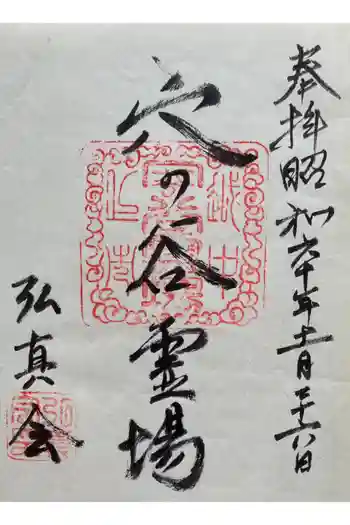 奉拝昭和六十年十一月二十六日
穴の谷霊場
弘真会